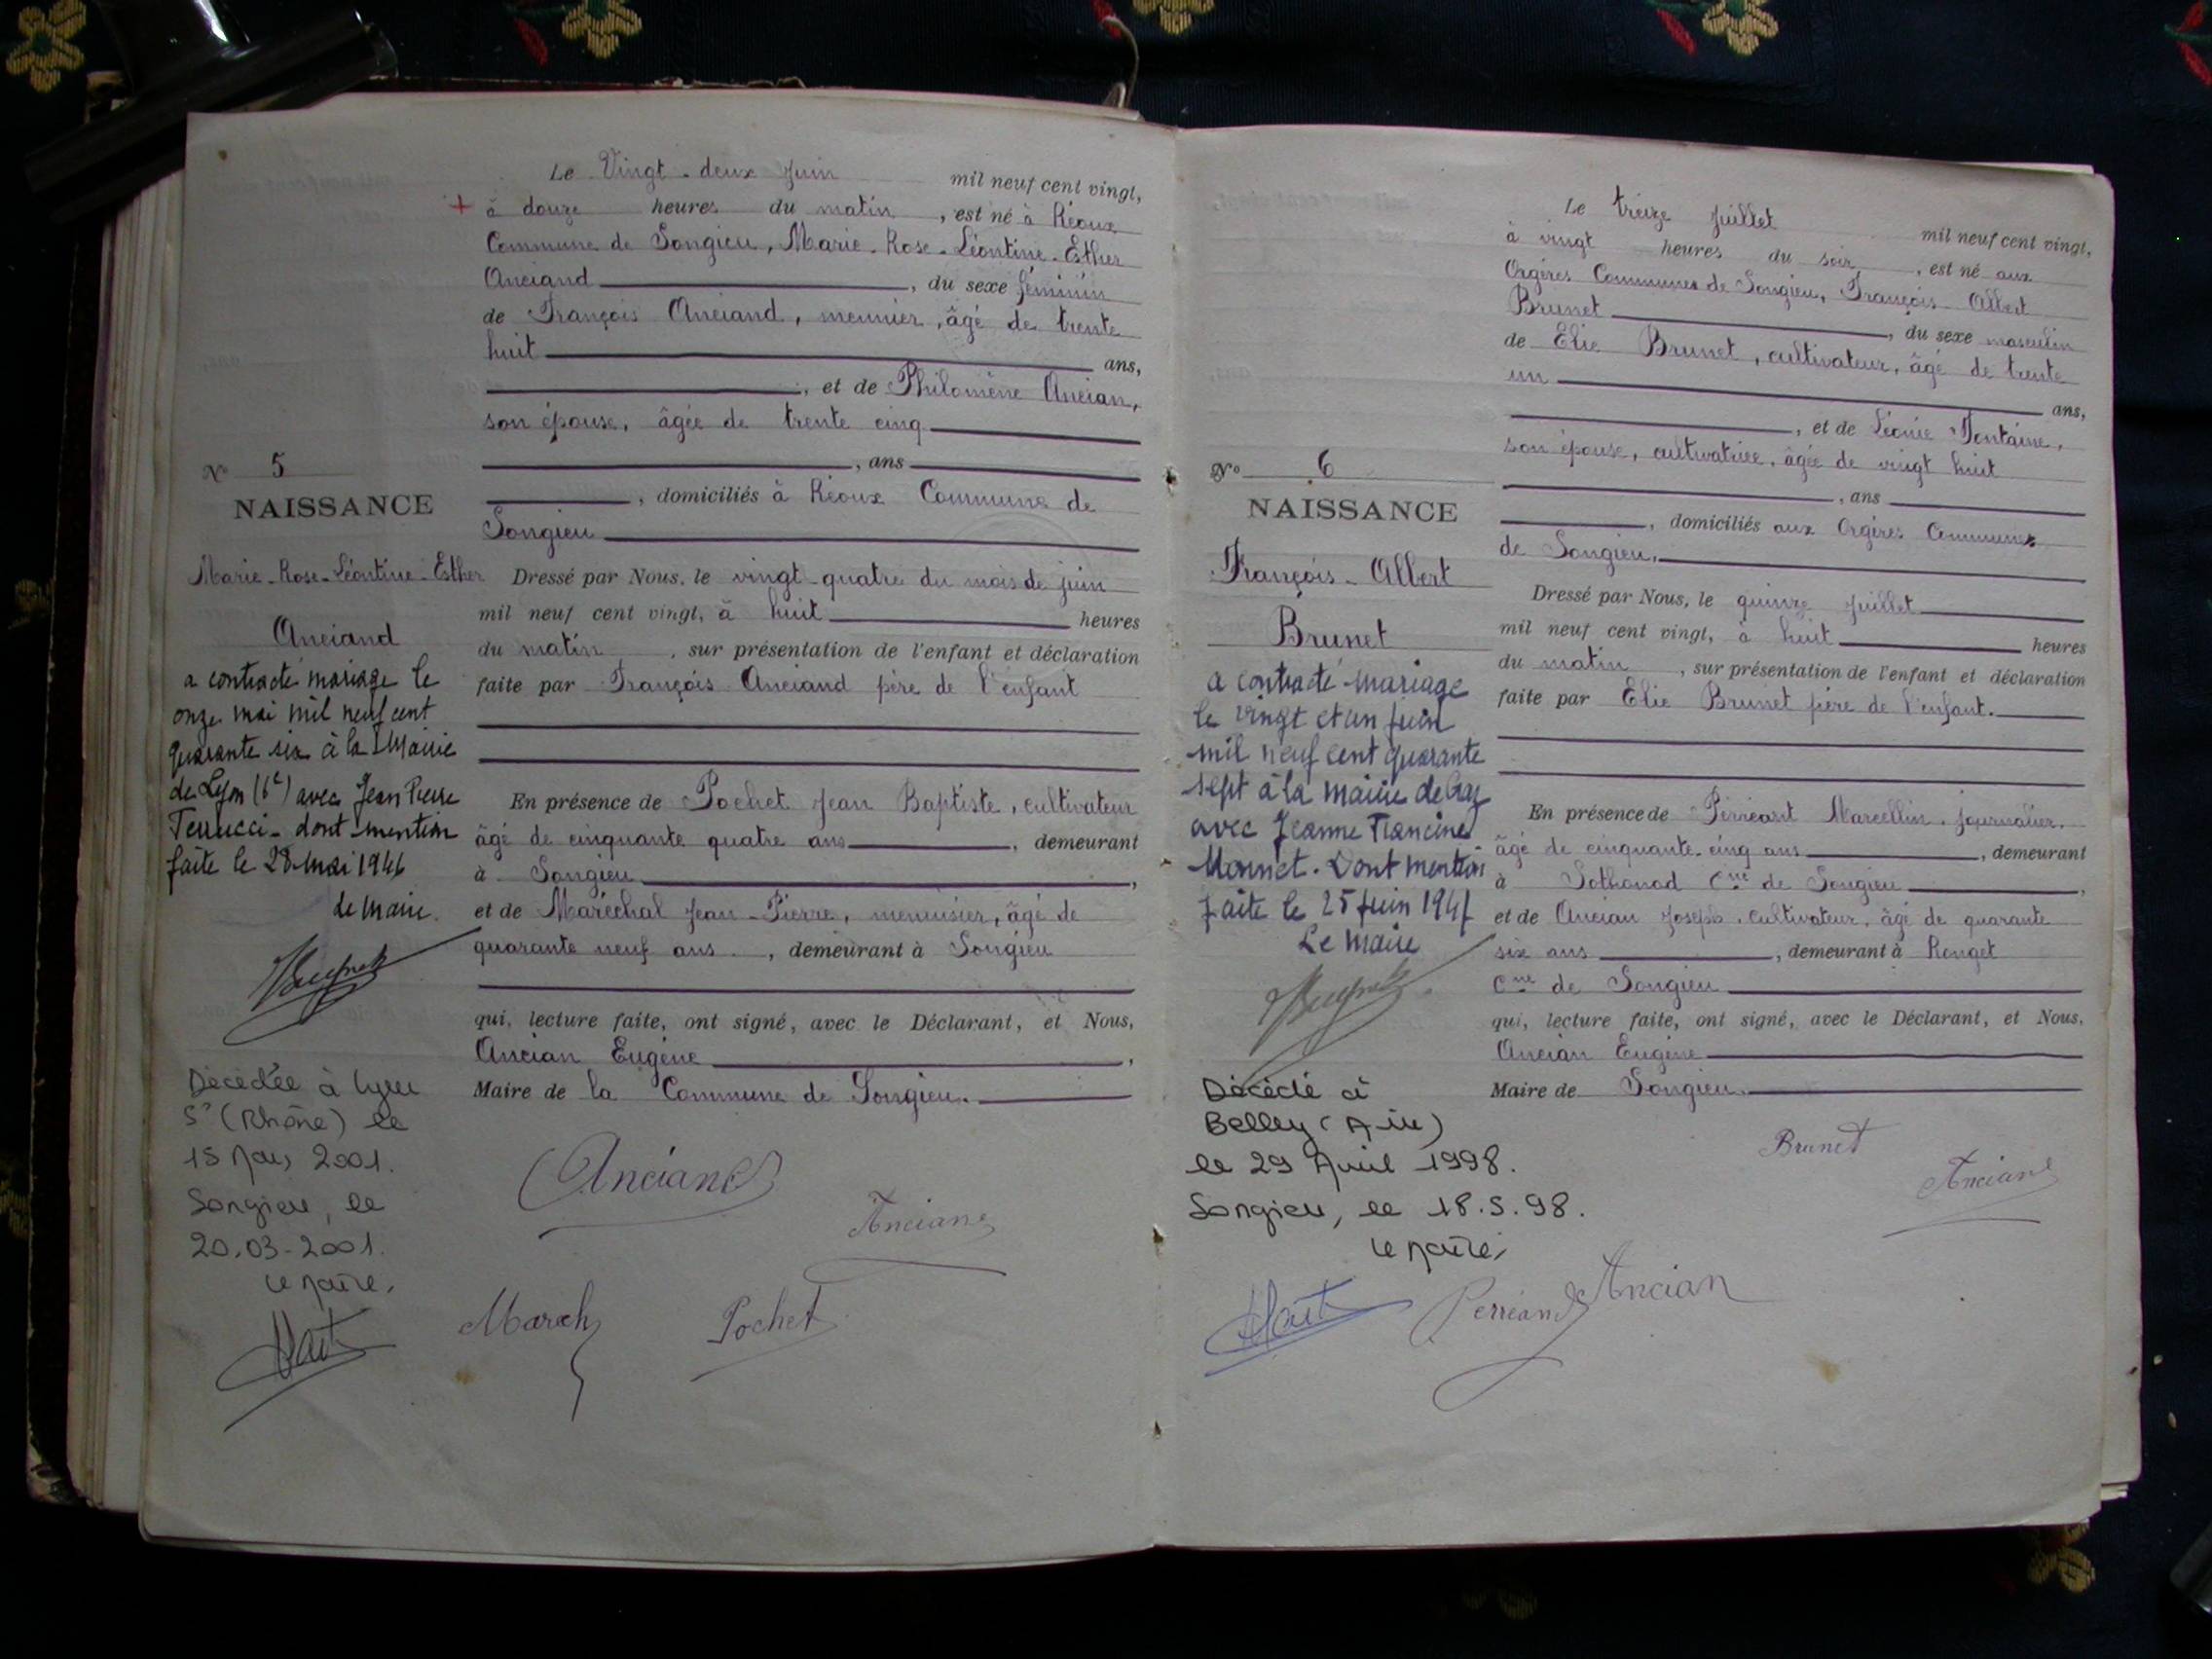 Le Vingt-deux Juin mil neuf cent vingt,
+ à douze heures du matin, est né à Réoux
Commune de Songieu, Marie-Rose-Léontine-Esther
Anciand, du sexe féminin
de François Anciand, meunier, âgé de trente
huit ans,
, et de Philomène Ancian,
son épouse, âgée de trente cinq
, ans
, domiciliés à Réoux Commune de
Songieu
Dressé par Nous, le vingt-quatre du mois de juin
mil neuf cent vingt, à huit heures
du matin, sur présentation de l'enfant et déclaration
faite par François Anciand père de l'enfant
En présence de Pochet Jean Baptiste, cultivateur
âgé de cinquante quatre ans, demeurant
à Songieu,
et de Maréchal Jean-Pierre, menuisier, âgé de
quarante neuf ans, demeurant à Songieu
qui, lecture faite, ont signé, avec le Déclarant, et Nous,
Ancian Eugène,
Maire de la Commune de Songieu.
Anciand
Ancian
March
Pochet
N° 5
NAISSANCE
Marie-Rose-Léontine-Esther
Anciand
a contracté mariage le
onze mai mil neuf cent
quarante six à la Mairie
de Lyon (6e) avec Jean Pierre
Terrucci- dont mention
faite le 28 mai 1946
Le Maire.
Décédée à Lyon
5° (Rhône) le
15 Mars 2001.
Songieu, le
20.03-2001.
Le Maire,
Le treize Juillet mil neuf cent vingt,
à vingt heures du soir, est né aux
Orgères Commune de Songieu, François-Albert
Brunet, du sexe masculin
de Elie Brunet, cultivateur, âgé de trente
un ans,
, et de Léonie Fontaine,
son épouse, cultivatrice, âgée de vingt huit
, ans
, domiciliés aux Orgères Commune
de Songieu.
Dressé par Nous, le quinze juillet
mil neuf cent vingt, à huit heures
du matin, sur présentation de l'enfant et déclaration
faite par Elie Brunet père de l'enfant.
En présence de Perréant Marcellin, journalier,
âgé de cinquante-cinq ans, demeurant
à Sothonod Cne de Songieu,
et de Ancian Joseph, cultivateur, âgé de quarante
six ans, demeurant à Rouget
Cne de Songieu
qui, lecture faite, ont signé, avec le Déclarant, et Nous,
Ancian Eugène
Maire de Songieu.
Brunet
Ancian
Perréand
Ancian
N° 6
NAISSANCE
François-Albert
Brunet
a contracté mariage
le vingt et un juin
mil neuf cent quarante
sept à la mairie de
avec Jeanne Francine
Monnet. Dont mention
faite le 25 Juin 1947
Le Maire
Décédé à
Belley (Ain)
le 29 Avril 1998.
Songieu, le 18.5.98.
Le Maire,